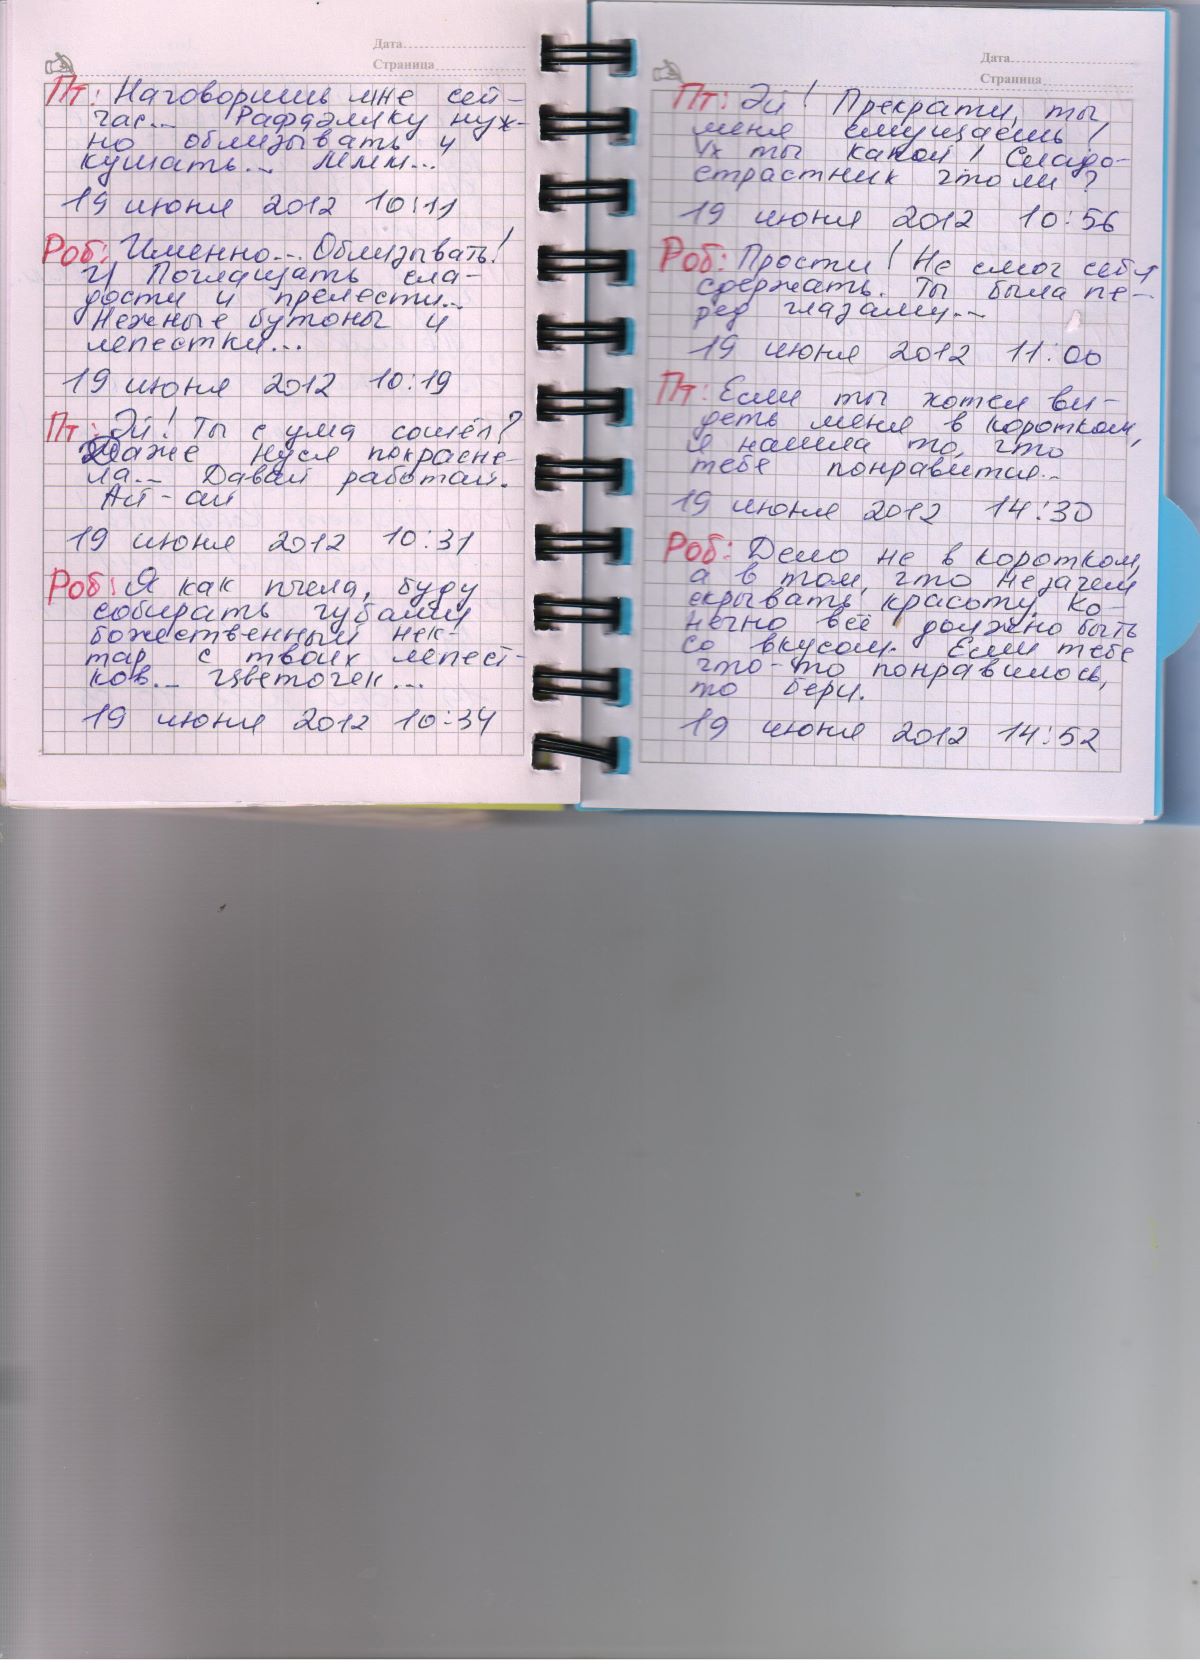 Дата
Страница
Пт: Наговоришь мне сей-
час... Рафаэлку нуж-
но облизывать и
кушать... Ммм...
19 июня 2012 10:11
Роб: Именно... Облизывать!
И Поглащать сла-
дости и прелести...
Нежные бутоны и
лепестки...
19 июня 2012 10:19
Пт: Эй! Ты с ума сошёл?
Даже Нуся покрасне-
ла... Давай работай.
Ай-ай
19 июня 2012 10:31
Роб: Я как пчела, буду
собирать губами
божественный нек-
тар с твоих лепест-
ков... Цветочек...
19 июня 2012 10:34
Дата
Страница
Пт: Эй! Прекрати, ты
меня смущаешь!
Ух ты какой! Сладо-
страстник что ли?
19 июня 2012 10:56
Роб: Прости! Не смог себя
сдержать. Ты была пе-
ред глазами...
19 июня 2012 11:00
Пт: Если ты хотел ви-
деть меня в коротком,
я нашла то, что
тебе понравится...
19 июня 2012 14:30
Роб: Дело не в коротком,
а в том, что незачем
скрывать красоту. Ко-
нечно всё должно быть
со вкусом. Если тебе
что-то понравилось,
то бери.
19 июня 2012 14:52